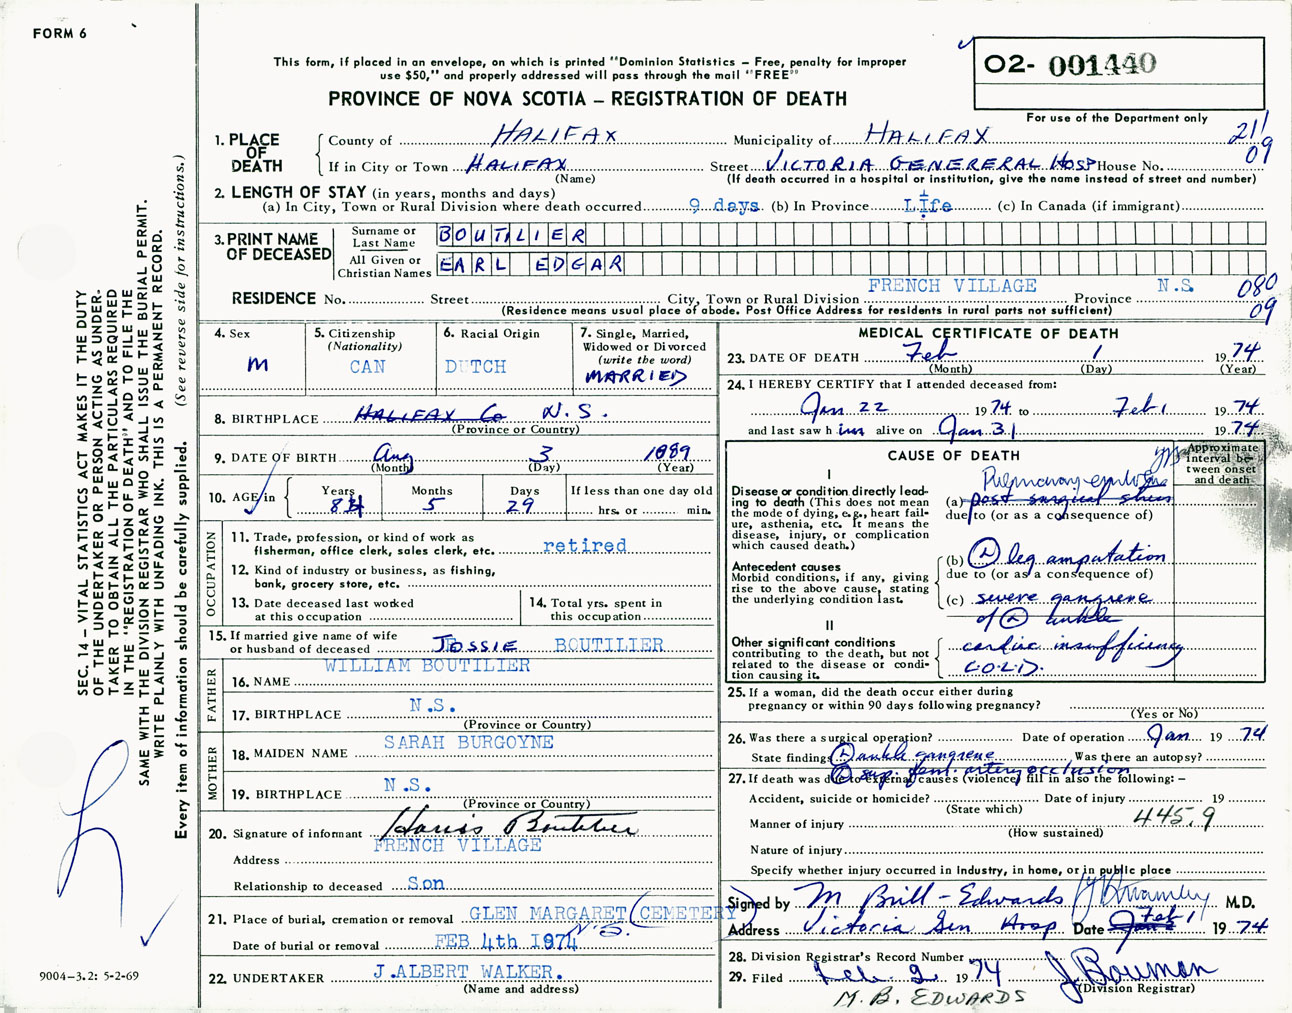 FORM 6
This form, if placed in an envelope, on which is printed "Dominion Statistics – Free, penalty for improper
use $50," and properly addressed will pass through the mail "FREE"
PROVINCE OF NOVA SCOTIA – REGISTRATION OF DEATH
O2- 001440
For use of the Department only
211
09
1. PLACE OF DEATH
County of HALIFAX Municipality of HALIFAX
If in City or Town HALIFAX Street VICTORIA GENERERAL HOSP House No.
(Name) (If death occurred in a hospital or institution, give the name instead of street and number)
2. LENGTH OF STAY (in years, months and days)
(a) In City, Town or Rural Division where death occurred 9 days (b) In Province Life (c) In Canada (if immigrant)
3. PRINT NAME OF DECEASED
Surname or Last Name BOUTILIER
All Given or Christian Names EARL EDGAR
RESIDENCE No. Street City, Town or Rural Division FRENCH VILLAGE Province N.S.
080
09
(Residence means usual place of abode. Post Office Address for residents in rural parts not sufficient)
4. Sex M
5. Citizenship (Nationality) CAN
6. Racial Origin DUTCH
7. Single, Married, Widowed or Divorced (write the word) MARRIED
8. BIRTHPLACE HALIFAX Co N.S.
(Province or Country)
9. DATE OF BIRTH Aug 3 1889
(Month) (Day) (Year)
10. AGE in Years 84 Months 5 Days 29 If less than one day old
hrs. or min.
OCCUPATION
11. Trade, profession, or kind of work as
fisherman, office clerk, sales clerk, etc. retired
12. Kind of industry or business, as fishing,
bank, grocery store, etc.
13. Date deceased last worked
at this occupation
14. Total yrs. spent in
this occupation
15. If married give name of wife
or husband of deceased JESSIE BOUTILIER
FATHER
16. NAME WILLIAM BOUTILIER
17. BIRTHPLACE N.S.
(Province or Country)
MOTHER
18. MAIDEN NAME SARAH BURGOYNE
19. BIRTHPLACE N.S.
(Province or Country)
20. Signature of informant Boutilier
Address FRENCH VILLAGE
Relationship to deceased Son
21. Place of burial, cremation or removal GLEN MARGARET (CEMETERY)
N.S.
Date of burial or removal FEB 4th 1974
22. UNDERTAKER J.ALBERT WALKER.
(Name and address)
MEDICAL CERTIFICATE OF DEATH
23. DATE OF DEATH Feb 1 1974
(Month) (Day) (Year)
24. I HEREBY CERTIFY that I attended deceased from:
Jan 22 1974 to Feb 1 1974
and last saw h im alive on Jan 31 1974
CAUSE OF DEATH
Approximate interval between onset and death
I
Disease or condition directly leading to death (This does not mean the mode of dying, e.g., heart failure, asthenia, etc. It means the disease, injury, or complication which caused death.)
Pulmonary embolus
(a) post surgical stress
due to (or as a consequence of)
Antecedent causes
Morbid conditions, if any, giving rise to the above cause, stating the underlying condition last.
(b) leg amputation
due to (or as a consequence of)
(c) severe gangrene
of ankle
II
Other significant conditions contributing to the death, but not related to the disease or condition causing it.
cardiac insufficiency
C.O.L.D.
25. If a woman, did the death occur either during
pregnancy or within 90 days following pregnancy?
(Yes or No)
26. Was there a surgical operation? Date of operation Jan 1974
State findings ankle gangrene Was there an autopsy?
sup. fem. artery occlusion
27. If death was due to external causes (violence) fill in also the following: –
Accident, suicide or homicide? Date of injury 19
(State which)
Manner of injury 445.9
(How sustained)
Nature of injury
Specify whether injury occurred in Industry, in home, or in public place
Signed by M Brill-Edwards M.D.
Address Victoria Gen Hosp Date Feb 1 1974
28. Division Registrar's Record Number
29. Filed Feb. 2 1974 J Bowman
(Division Registrar)
M.B. EDWARDS
SEC. 14 – VITAL STATISTICS ACT MAKES IT THE DUTY
OF THE UNDERTAKER OR PERSON ACTING AS UNDER-
TAKER TO OBTAIN ALL THE PARTICULARS REQUIRED
IN THE "REGISTRATION OF DEATH" AND TO FILE THE
SAME WITH THE DIVISION REGISTRAR WHO SHALL ISSUE THE BURIAL PERMIT.
WRITE PLAINLY WITH UNFADING INK. THIS IS A PERMANENT RECORD.
Every item of information should be carefully supplied. (See reverse side for instructions.)
9004-3.2: 5-2-69